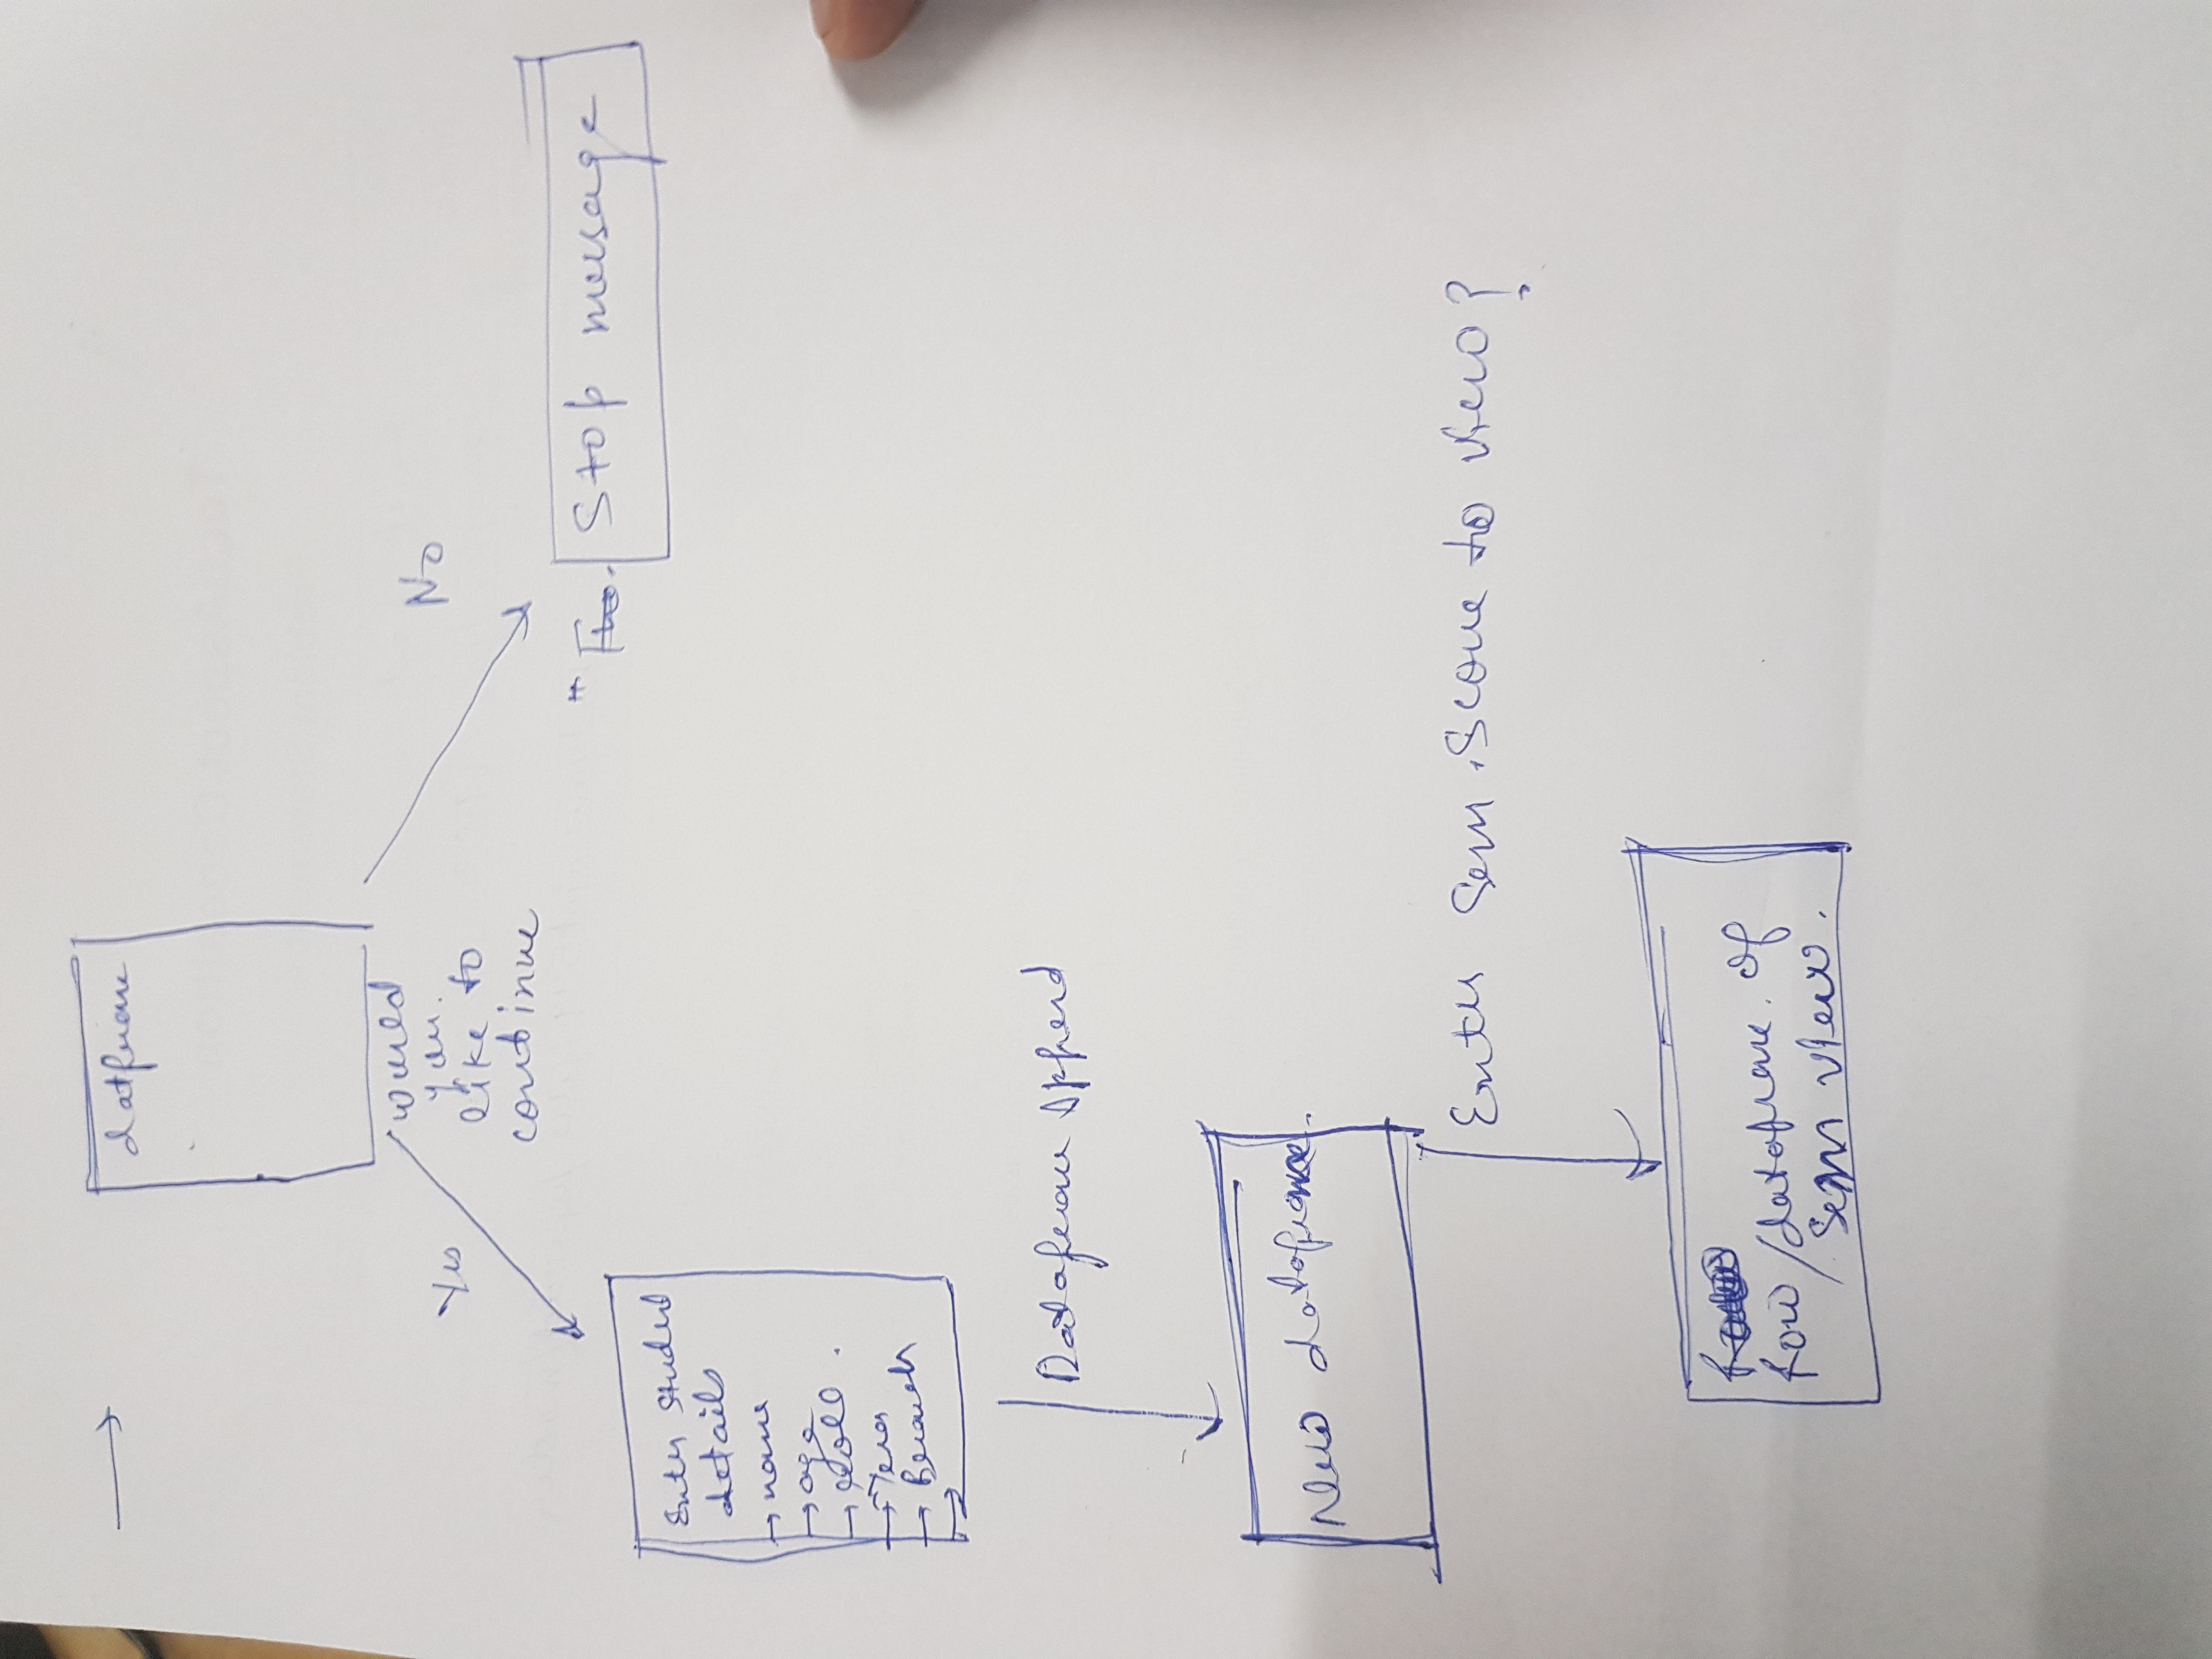 datframe
would
you.
like to
continue
Yes
No
Stop message
Enter Student
details
→ name
→ age
→ roll.
→ Year
→ Branch
→
Dataframe Append
New dataframe.
Enter Sem. Score to view?
Row/dataframe. of
sem view.